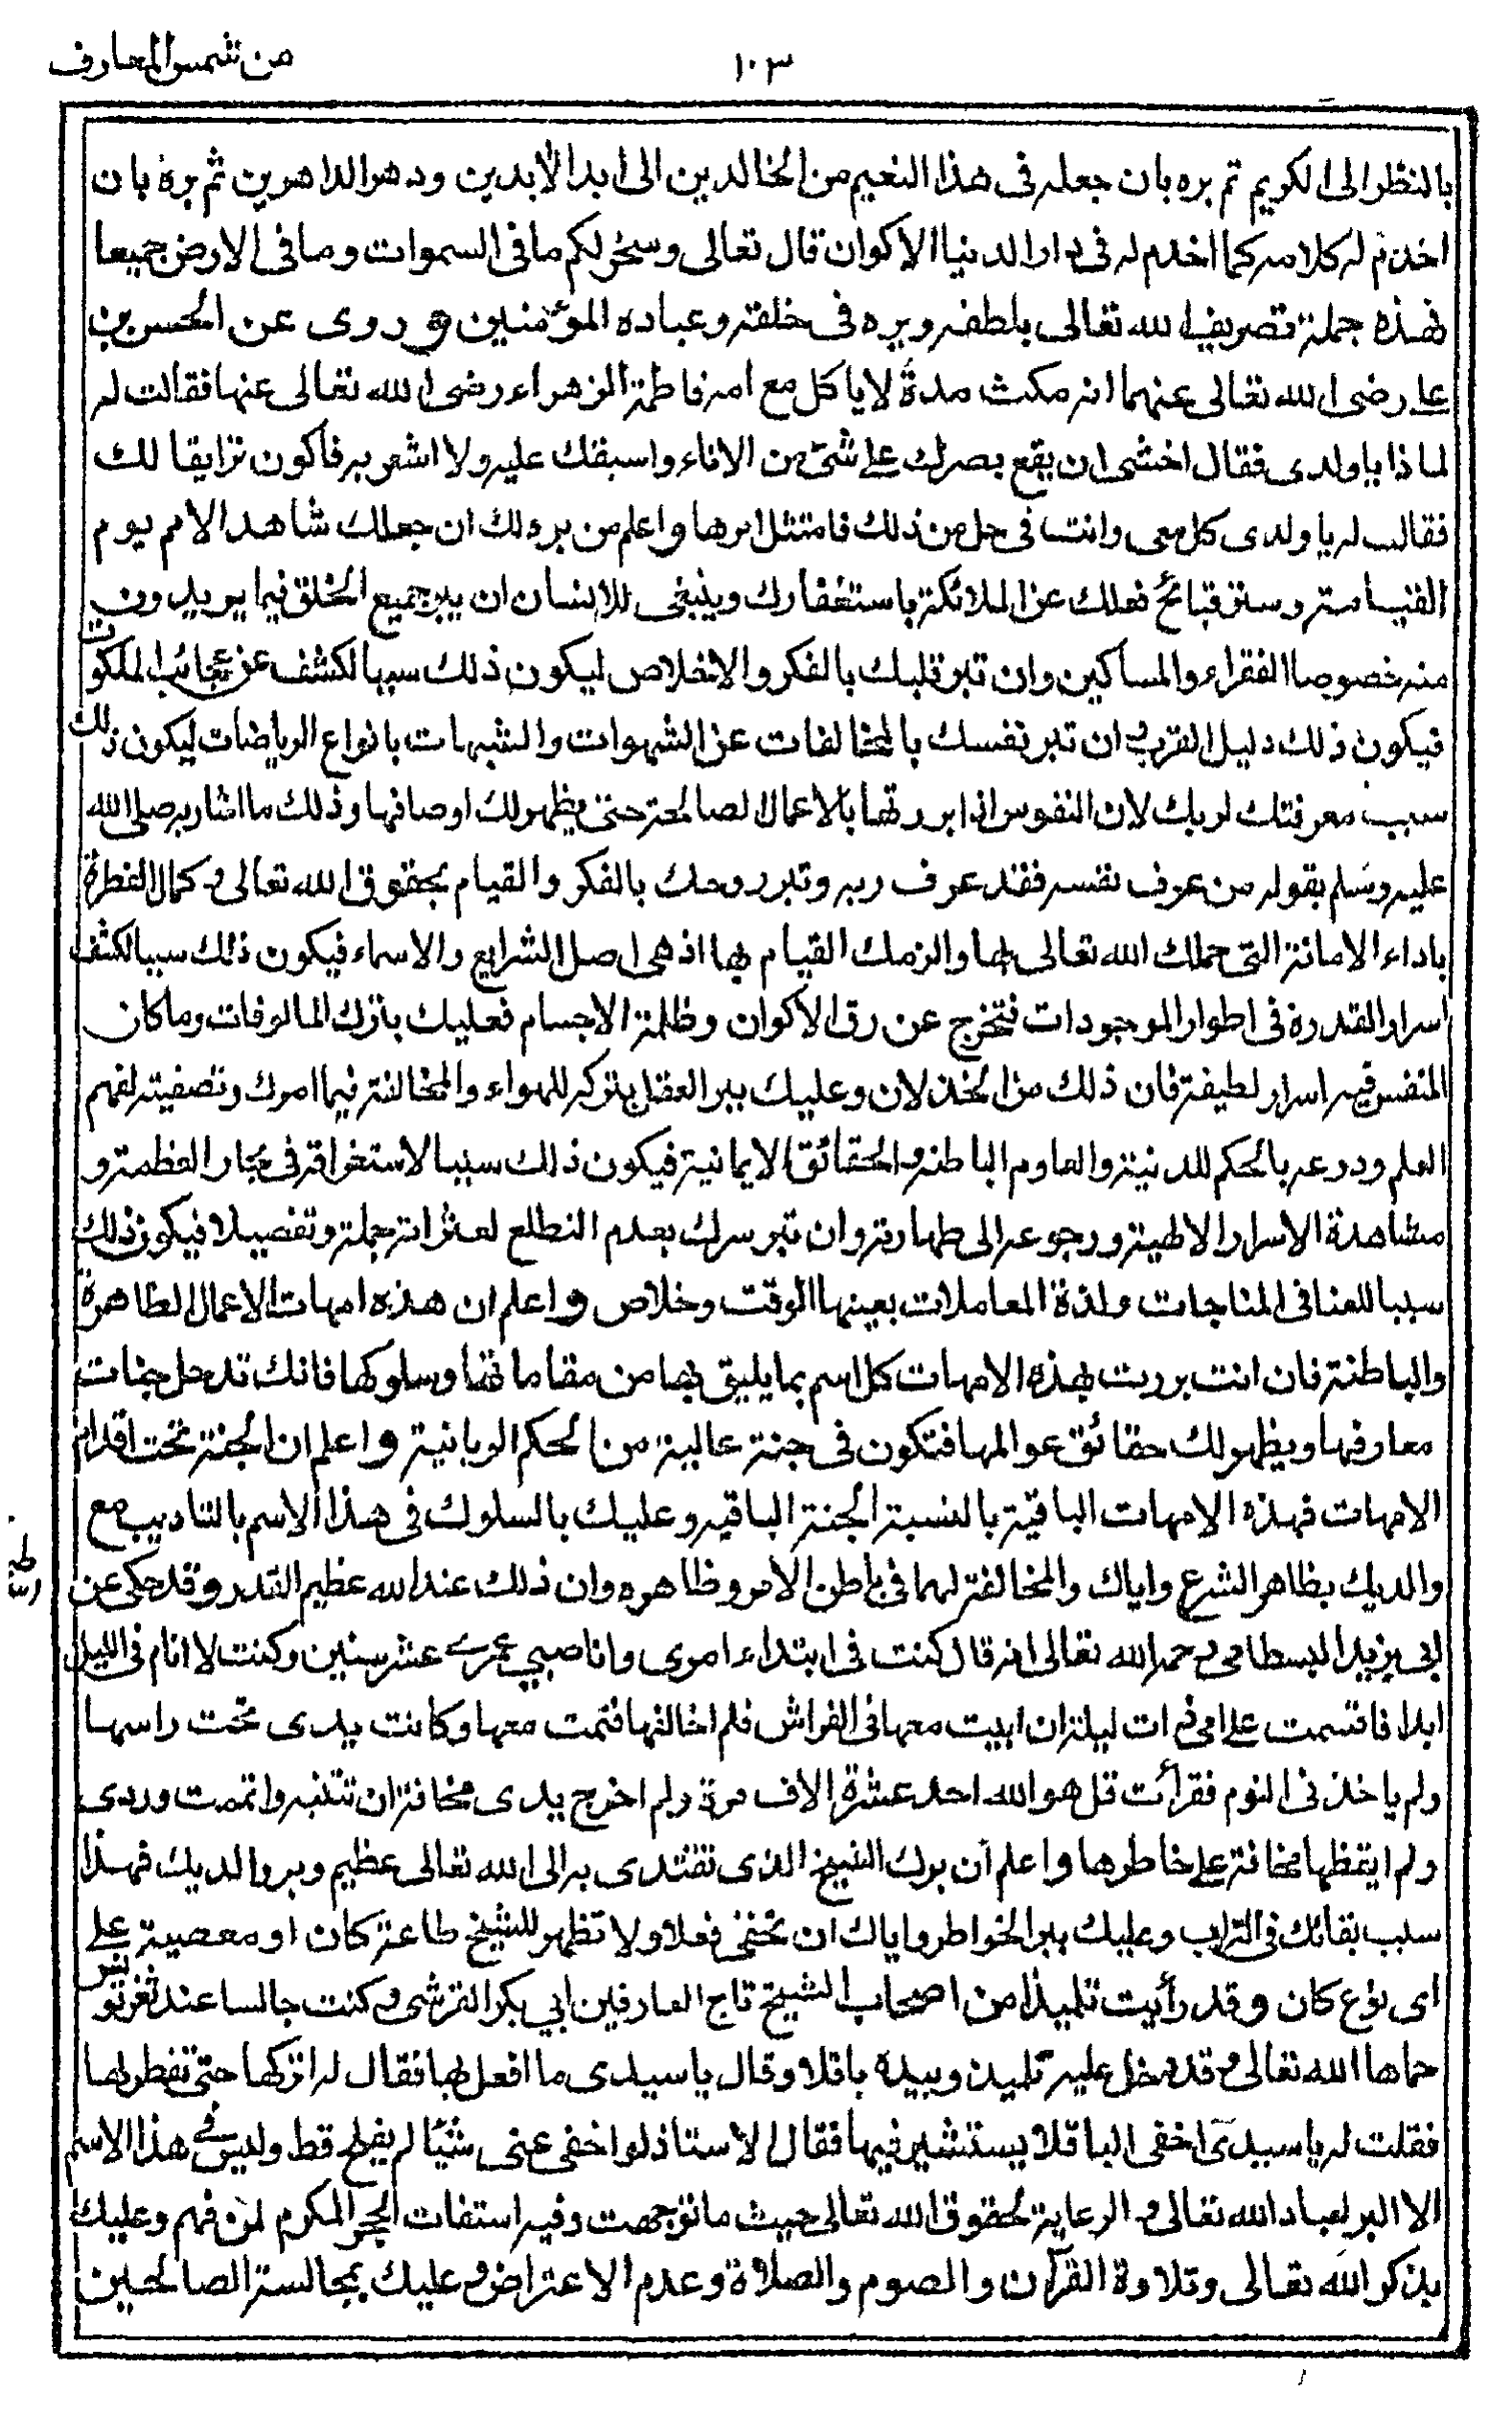 من شمس المعارف
١٠٣
بالنظر الى الكريم ثم بره بان جعله فى هذا النعيم من الخالدين الى ابد الأبدين ودهر الداهرين ثم بره بان
اخدم له كلامه كما اخدم له فى دار الدنيا الاكوان قال تعالى وسخر لكم ما فى السموات وما فى الارض جميعا
فهذه جملة تصريف الله تعالى بلطفه وبره فى خلقه وعباده المؤمنين و روى عن الحسن بن
على رضى الله تعالى عنهما انه مكث مدة لا ياكل مع امه فاطمة الزهراء رضى الله تعالى عنها فقالت له
لماذا يا ولدى فقال اخشى ان يقع بصرك على شئ من الاناء واسبقك عليه ولا اشعر به فاكون
فقالت له يا ولدى كل معى وانت فى حل من ذلك فامتثل امرها واعلم من بره لك ان جعلك شاهد الامم يوم
القيامة وستر قبائح فعلك عن الملائكة باستغفارك وينبغى للانسان ان يبر جميع الخلق فيما يريدون
منه خصوصا الفقراء والمساكين وان تبر قلبك بالفكر والاخلاص ليكون ذلك سببا لكشف عن عجائب الملكوت
فيكون ذلك دليل القرب ان تبر نفسك بالمخالفات عن الشهوات والشبهات بانواع الرياضات ليكون ذلك
سبب معرفتك لربك لان النفوس اذا ابررتها بالاعمال الصالحة حتى يظهر لك اوصافها وذلك ما اشار به صلى الله
عليه وسلم بقوله من عرف نفسه فقد عرف ربه وتبر روحك بالفكر والقيام بحقوق الله تعالى و كمال الفطرة
باداء الامانة التى حملك الله تعالى لها والزمك القيام بها اذ هى اصل الشرايع والاسماء فيكون ذلك سببا لكشف
اسرار القدرة فى اطوار الموجودات فتخرج عن رق الاكوان وظلمة الاجسام فعليك بترك المالوفات وما كان
للنفس فيه اسرار لطيفة فان ذلك من الخذلان وعليك ببر العقل بتركه للهواء والمخالفة فيما امرك وتصفيته لفهم
العلم ودرعه بالحكم اللدنية والعلوم الباطنة والحقائق الايمانية فيكون ذلك سببا لاستغراقه فى بحار العظمة و
مشاهدة الاسرار الالهية ورجوعه الى طهارته وان تبر سرك بعدم التطلع لعثراته جملة وتفصيلا فيكون ذلك
سببا للغنا فى المناجات ولذة المعاملات بعينها الوقت وخلاص واعلم ان هذه امهات الاعمال الظاهرة
والباطنة فان انت بررت بهذه الامهات كل اسم بما يليق بها من مقاماتها وسلوكها فانك تدخل جنات
معارفها ويظهر لك حقائق عوالمها فتكون فى جنة عالية من الحكم الربانية واعلم ان الجنة تحت اقدام
الامهات فهذه الامهات الباقية بالنسبة الجنة الباقيه وعليك بالسلوك فى هذا الاسم بالتاديب مع
والديك بظاهر الشرع واياك والمخالفة لهما فى باطن الامر وظاهره وان ذلك عند الله عظيم القدر وقد حكى عن
ابى يزيد البسطامى رحمه الله تعالى انه قال كنت فى ابتداء امرى وانا صبي عمرى عشر سنين وكنت لا انام فى الليل
ابدا فاقسمت على امى ذات ليلة ان ابيت معها فى الفراش فلم اخالفها فنمت معها وكانت يدى تحت راسها
ولم ياخذنى النوم فقرأت قل هو الله احد عشرة الاف مرة ولم اخرج يدى مخافة ان تنتبه واتممت وردى
ولم ايقظها مخافة على خاطرها واعلم ان برك الشيخ الذى تقتدى به الى الله تعالى عظيم وبر والديك فهذا
سبب بقائك فى التراب وعليك ببر الخواطر واياك ان تخفى فعلا ولا تظهر للشيخ طاعة كان او معصية على
اى نوع كان وقد رأيت تلميذا من اصحاب الشيخ تاج العارفين ابي بكر القرشى و كنت جالسا عند ثغر تونس
حماها الله تعالى و قد دخل عليه تلميذ وبيده باقلا وقال يا سيدى ما افعل بها فقال له اتركها حتى تفطر بها
فقلت له يا سيدى اخفى الباقلا يستشير فيها فقال الاستاذ لو اخفى عنى شئا لم يفلح قط وليس فى هذا الاسم
الا البر لعباد الله تعالى و الرعاية لحقوق الله تعالى حيث ما توجهت وفيه المكرم لمن فهم وعليك
بذكر الله تعالى وتلاوة القرآن والصوم والصلاة وعدم الاعتراض و عليك بمجالسة الصالحين